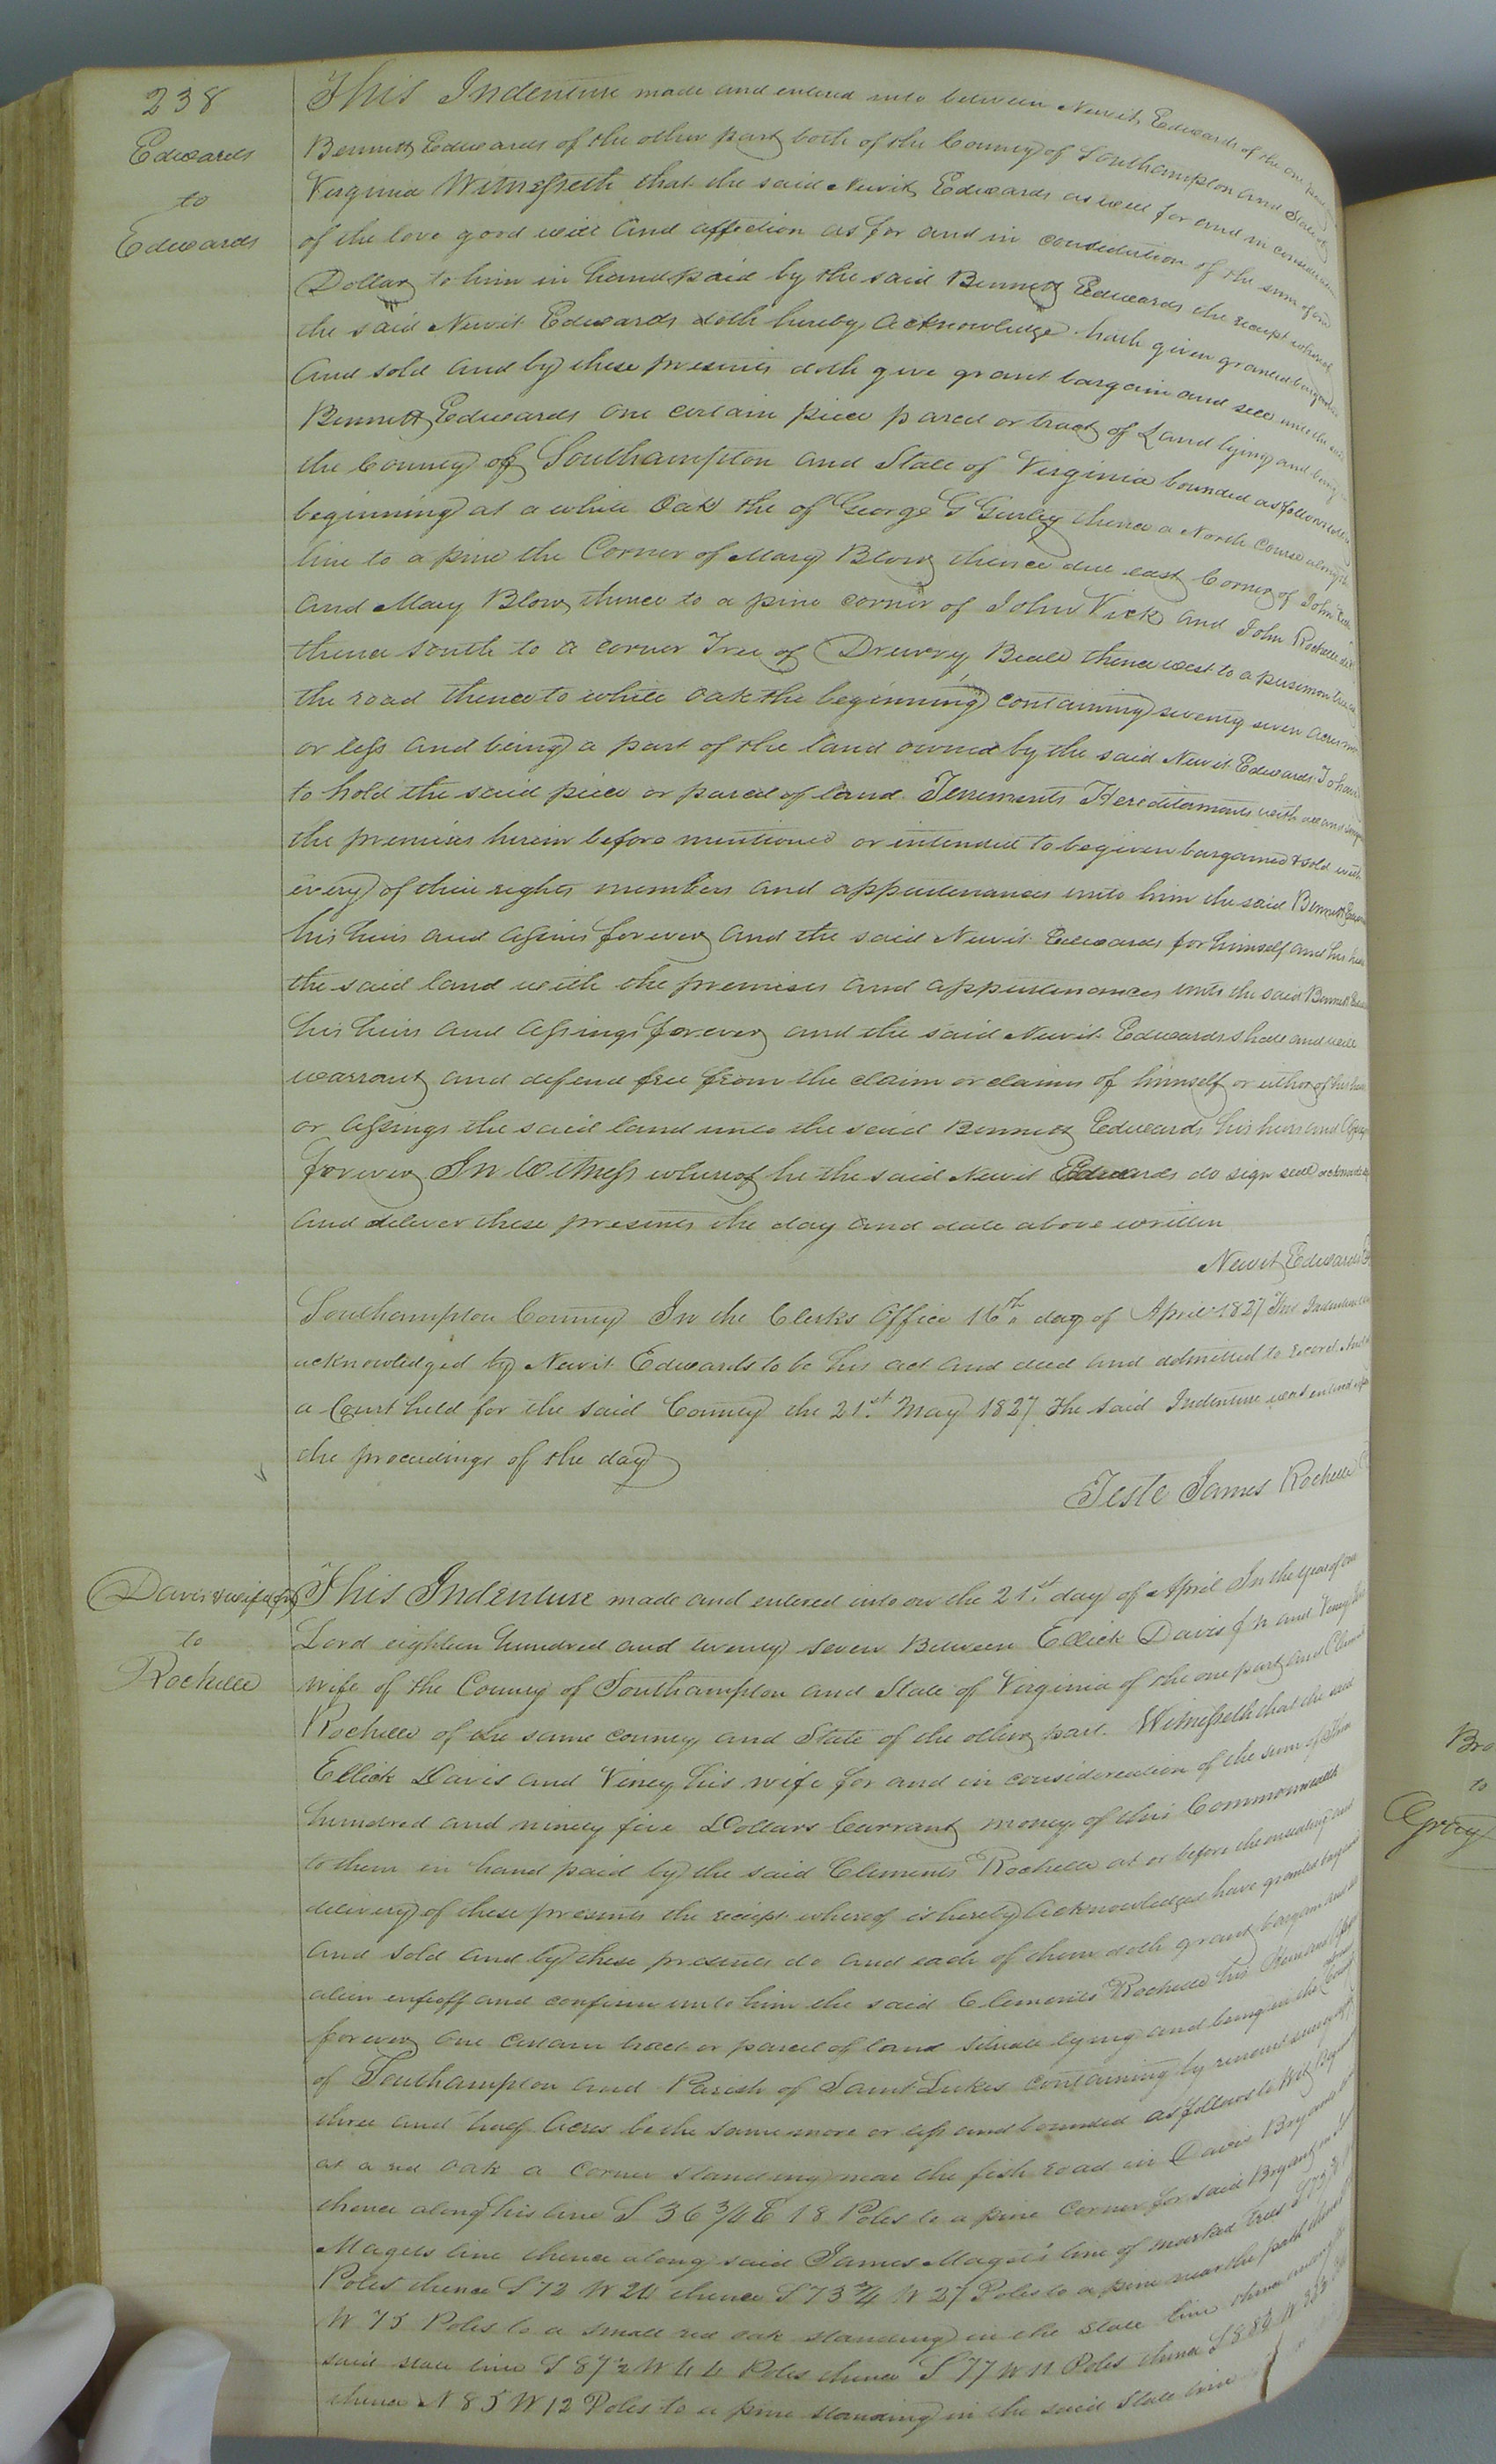 238
Edwards
to
Edwards
This Indenture made and entered into between Newit Edwards of the one part
Bennett Edwards of the other part both of the County of Southampton and State of
Virginia Witnesseth that the said Newit Edwards as well for and in consideration
of the love good will and affection as for and in consideration of the sum of one
Dollar to him in hand paid by the said Bennett Edwards the receipt whereof
the said Newit Edwards doth hereby acknowledge hath given granted bargained
and sold and by these presents doth give grant bargain and sell unto the said
Bennett Edwards one certain piece parcel or tract of Land lying and being
the County of Southampton and State of Virginia bounded as follows
beginning at a white Oak the of George G Gurley thence a North Course along
line to a pine the Corner of Mary Blow thence due east Corner of John
and Mary Blow thence to a pine corner of John Vick and John Rochelle
thence south to a corner Tree of Drewry Beale thence west to a pusimon tree
the road thence to white oak the beginning containing seventy seven acres more
or less and being a part of the land owned by the said Newit Edwards To have
to hold the said piece or parcel of land Tenements Hereditaments with all and
the premises herein before mentioned or intended to be given bargained & sold with
every of their rights members and appurtenances unto him the said Bennett
his heirs and assins forever and the said Newit Edwards for himself and his heirs
the said land with the premises and appurtenances unto the said Bennett
his heirs and assings forever and the said Newit Edwards shall and will
warrant and defend free from the claim or claims of himself or either of his heirs
or assings the said land unto the said Bennett Edwards his heirs and
forever In Witness whereof he the said Newit Edwards do sign seal
and deliver these presents the day and date above written
Newit Edwards
Southampton County In the Clerks Office 16th day of April 1827 This Indenture
acknowledged by Newit Edwards to be his act and deed and admitted to record And
a Court held for the said County the 21st May 1827 The said Indenture was entered
the proceedings of the day
Teste James Rochelle
Davis & wife
to
Rochelle
This Indenture made and entered into on the 21st day of April In the year of our
Lord eighteen hundred and twenty seven Between Ellick Davis Jn and Viney his
wife of the County of Southampton and State of Virginia of the one part and
Rochelle of the same county and State of the other part. Witnesseth that the said
Ellick Davis and Viney his wife for and in consideration of the sum of
hundred and ninety five Dollars Currant money of this Commonwealth
to them in hand paid by the said Clements Rochelle at or before the ensealing and
delivery of these presents the receipt whereof is hereby acknowledged have granted
and sold and by these presents do and each of them doth grant bargain and
alien enfeoff and confirm unto him the said Clements Rochelle his Heirs and
forever one certain tract or parcel of land situate lying and being in the
of Southampton and Parish of Saint Lukes containing by recent survey
three and half Acres be the same more or less and bounded as follows to Wit
at a red oak a corner standing near the fish road in Davis Bryants
thence along his line S 36 3/4 E 18 Poles to a pine Corner for said Bryant
Magets line thence along said James Maget's line of marked trees
Poles thence S 72 W 24 thence S 73 3/4 W 27 Poles to a pine near the path
W 75 Poles to a small red oak standing in the State line thence
said state line S 87 1/2 W 44 Poles thence S 77 W 11 Poles thence
thence N 85 W 12 Poles to a pine standing in the said State line
Bro
to